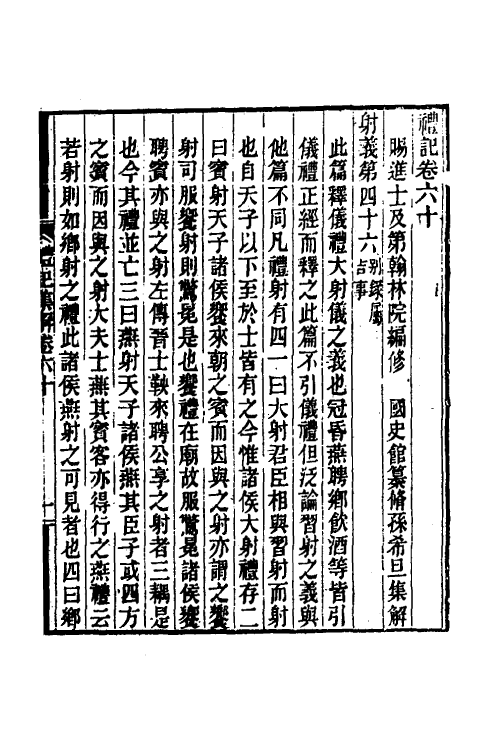 禮記卷六十
賜進士及第翰林院編修　國史館纂脩孫希旦集解
射義第四十六别録屬吉事
此篇釋儀禮大射儀之義也冠昏燕聘鄉飲酒等皆引
儀禮正經而釋之此篇不引儀禮但泛論習射之義與
他篇不同凡禮射有四一曰大射君臣相與習射而射
也自天子以下至於士皆有之今惟諸侯大射禮存二
曰賓射天子諸侯饗來朝之賓而因與之射亦謂之饗
射司服饗射則驚冕是也饗禮在廟故服驚冕諸侯饗
聘賓亦與之射左傳晉士鞅來聘公享之射者三耦是
也今其禮並亡三曰燕射天子諸侯燕其臣子或四方
之賓而因與之射大夫士燕其賓客亦得行之燕禮云
若射則如鄉射之禮此諸侯燕射之可見者也四曰鄉
禮記集解卷六十
一